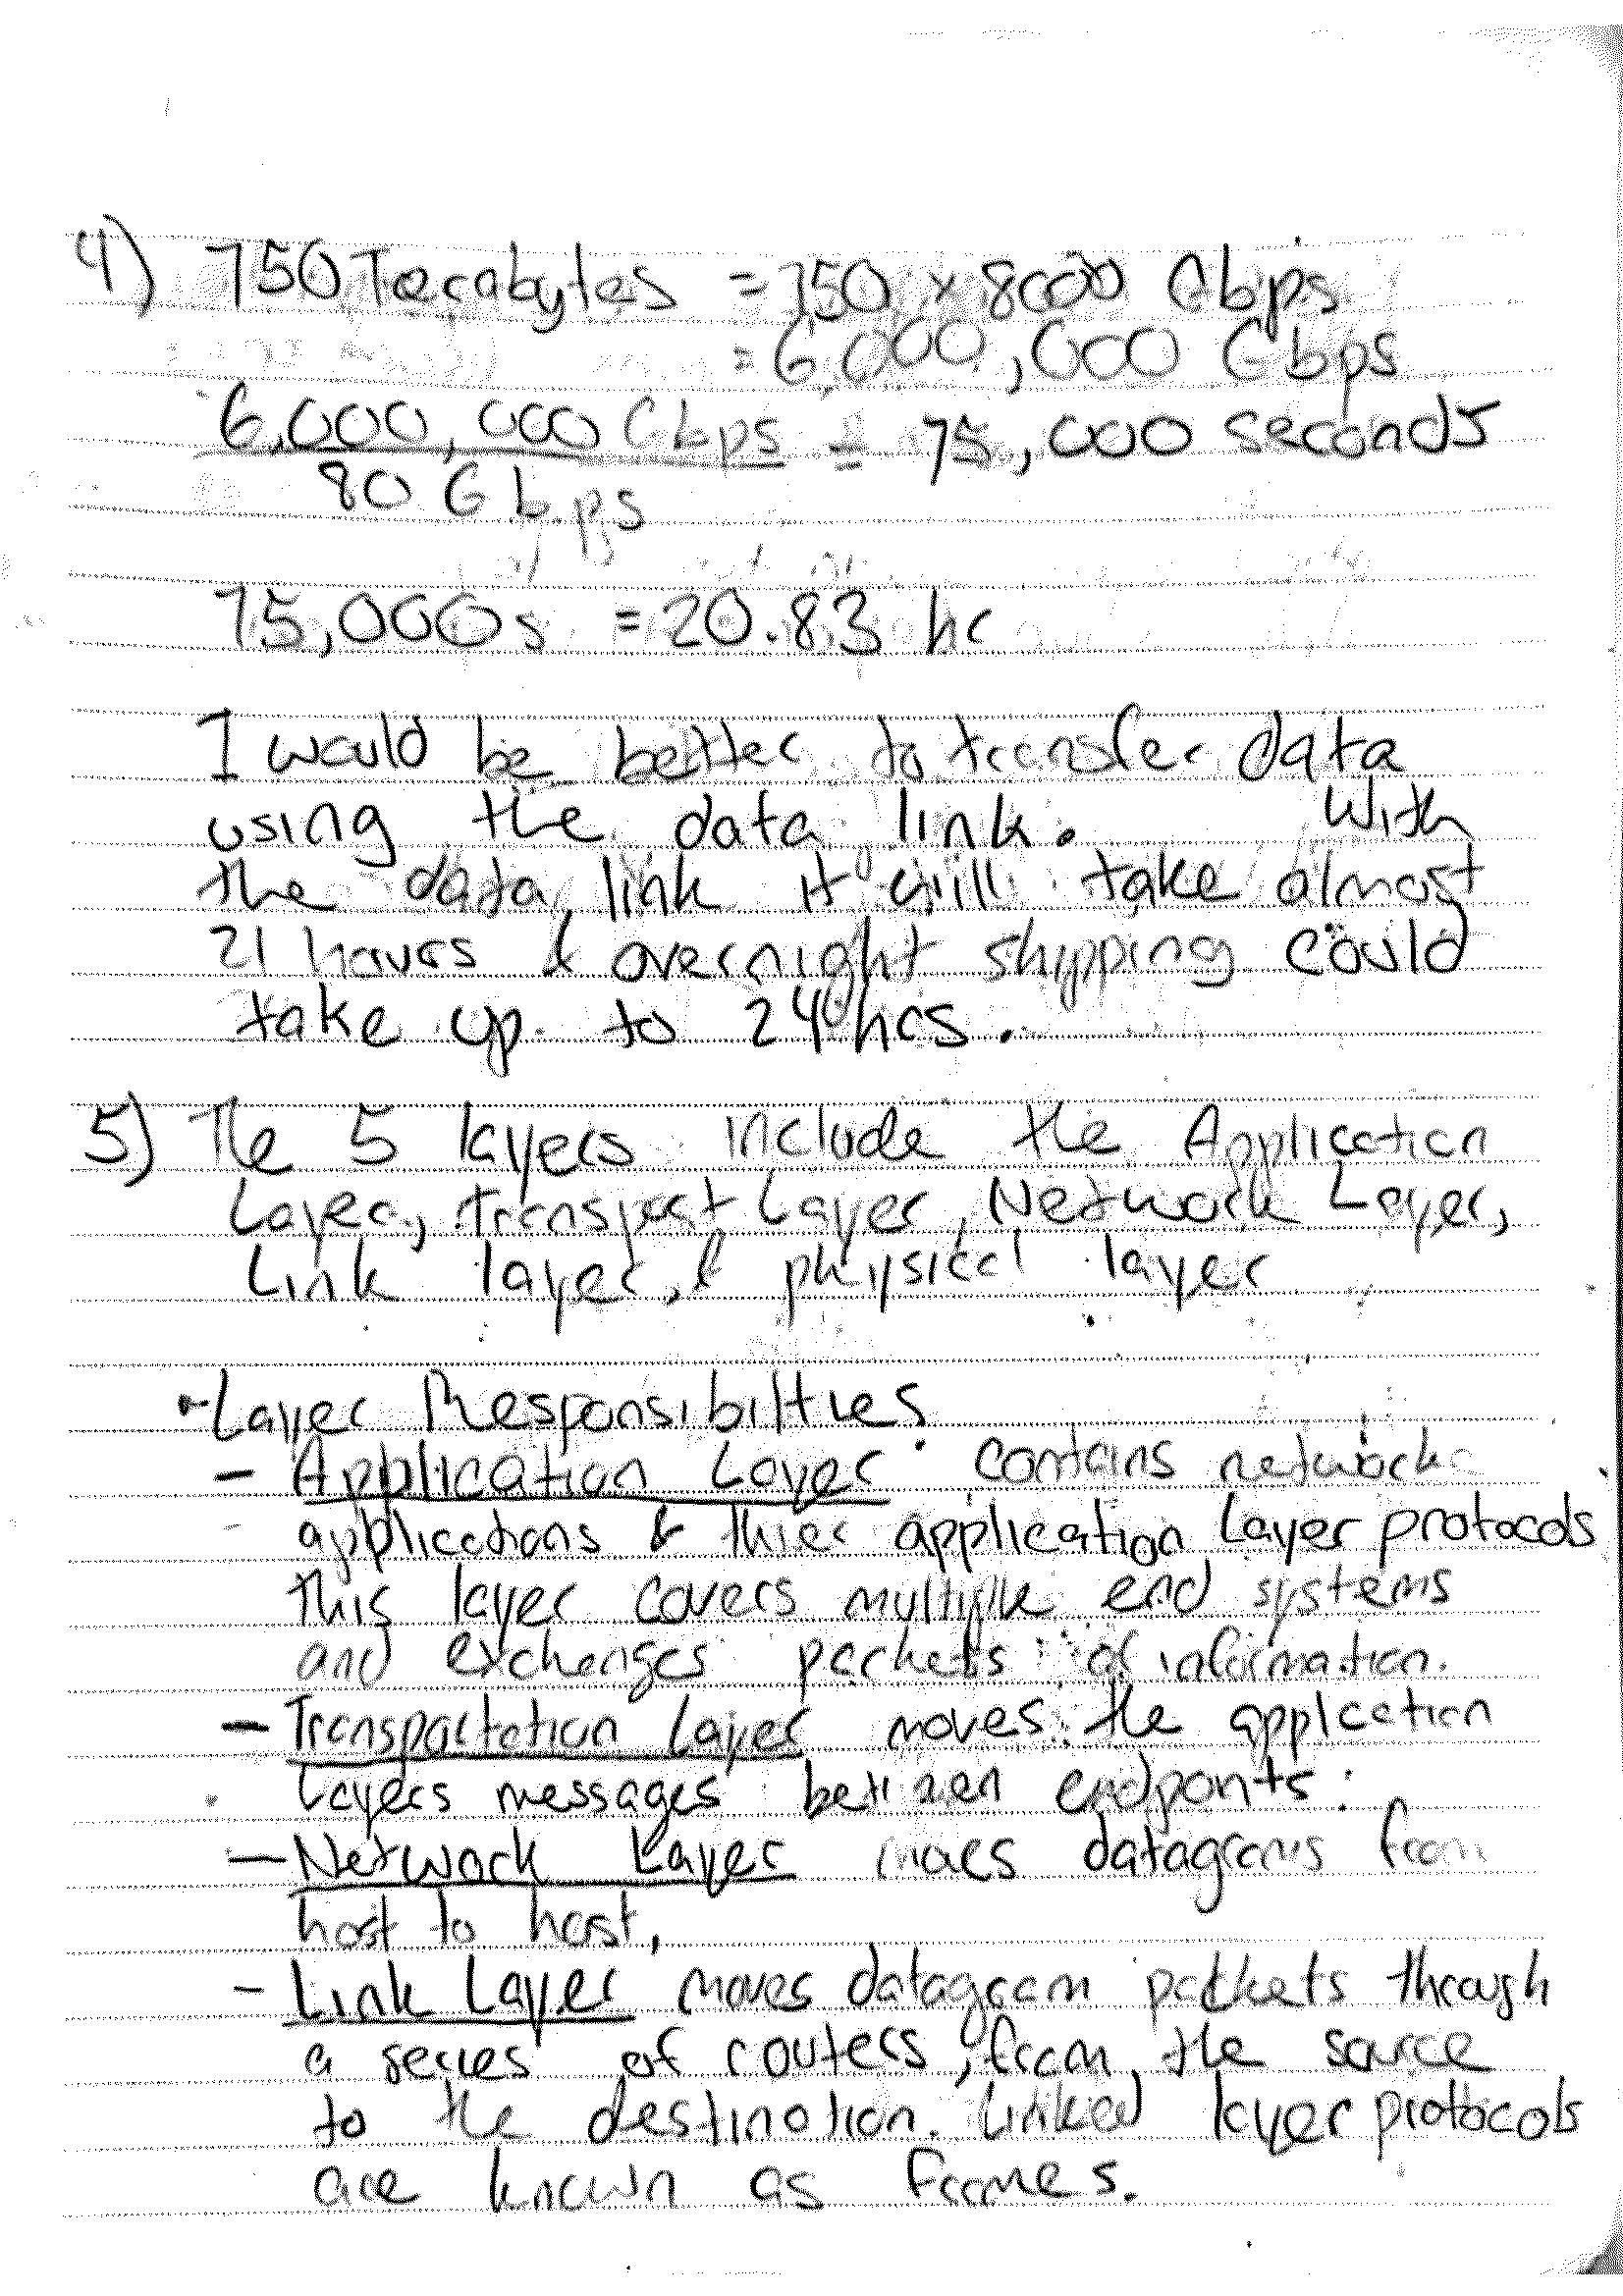 4) 750 Terabytes = 750 x 8000 Gbps
= 6,000,000 Gbps
6,000,000 Gbps = 75,000 seconds
80 Gbps
75,000s = 20.83 hr
I would be better to transfer data
using the data link. With
the data link it will take almost
21 hours & overnight shipping could
take up to 24 hrs.
5) The 5 layers include the Application
Layer, Transport Layer, Network Layer,
Link layer, & physical layer
- Layer Responsibilties
- Application Layer contains network
applications & thier application Layer protocols
this layer covers multiple end systems
and exchanges packets of information.
- Transportation Layer moves the applcation
layers messages between endponts.
- Network Layer moves datagrams from
host to host,
- Link Layer moves datagram packets through
a series of routers, from the source
to the destination. Linked layer protocols
are known as Frames.